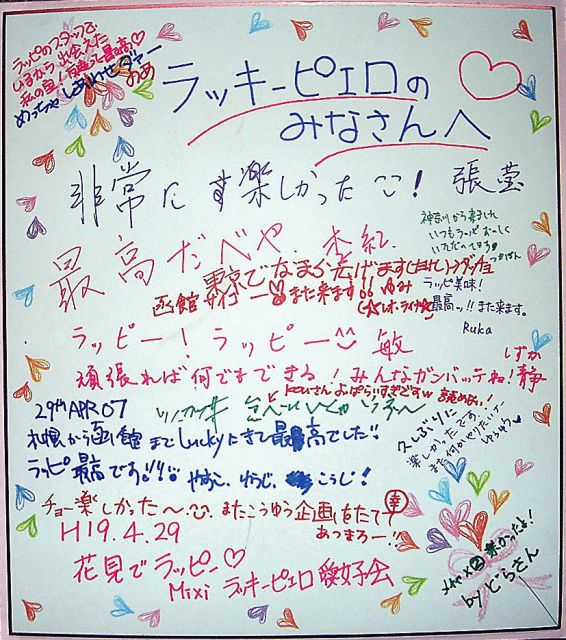 ラッピのスタッフで
いるから出会えた
めっちゃしあわせダァー
ラッキーピエロの
みなさんへ
非常にす楽しかった！ 張莹
神奈川から来ました
いつもラッピおいしく
いただいてます
最高だべや。 木紅
東京でなまら広げます
函館サイコー♡また来ます!! ゆみ
ラッピ美味！
最高ッ!!また来ます。
Ruka
ラッピー！ラッピー 敏
しずか
頑張れば何でまできる！みんなガンバッテね！静
29th APR 07
札幌から函館までLuckyにきて最高でした!!
ラッピ最高です!!! やすこ、ゆうじ、こうじ！
久しぶりに
楽しかったです。
チョー楽しかった〜。またこうゆう企画をたて
幸
あつまろー!!
H19.4.29
花見でラッピー♡
Mixi ラッキーピエロ愛好会
メチャ×②楽かったよ！
by どらさん